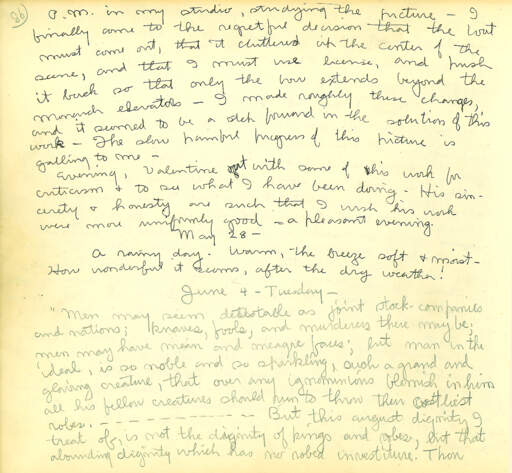 86
P.M. in my studio, studying the picture - I
finally came to the regretful decision that the boat
must come out, that it cluttered up the center of the
scene, and that I must use license, and push
it back so that only the bow extends beyond the
monarch elevators - I made roughly these changes,
and it seemed to be a step forward in the solution of this
work - The slow painful progress of this picture is
galling to me -
Evening, Valentine out with some of his work for
criticism & to see what I have been doing - His sin-
cerity & honesty are such that I wish his work
were more uniformly good - a pleasant evening.
May 28 -
A rainy day. Warm, - the breeze soft & moist -
How wonderful it seems, after the dry weather!
June 4 - Tuesday -
"Men may seem detestable as joint stock-companies
and nations; knaves, fools, and murderers there may be;
men may have mean and meagre faces; but man in the
ideal, is so noble and so sparkling, such a grand and
glowing creature, that over any ignominious blemish in him
all his fellow creatures should run to throw their costliest
robes. - - - - - - - - - - - - - But this august dignity I
treat of, is not the dignity of kings and robes, but that
abounding dignity which has no robed investiture. Thou